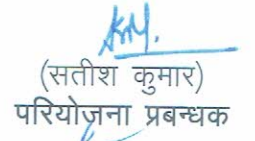 (सतीश कुमार)
परियोजना प्रबन्धक